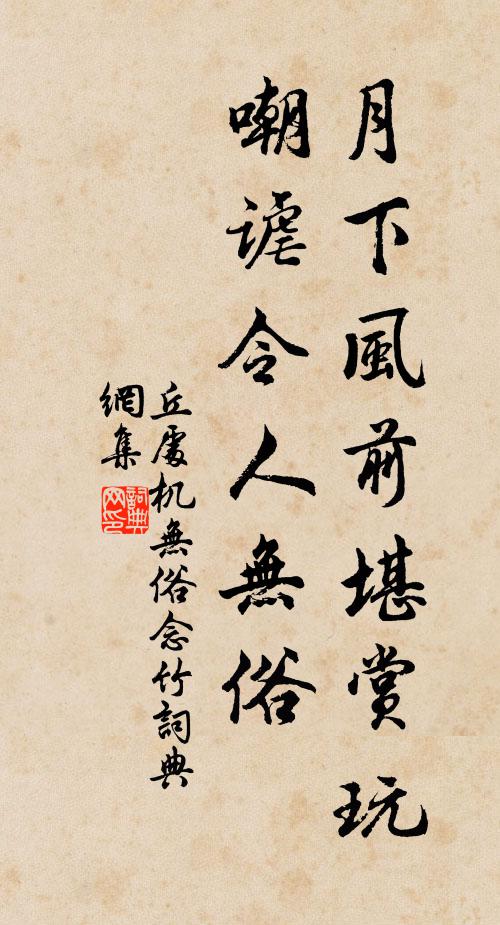 月下風前堪賞玩
嘲謔令人無俗
丘處机無俗念竹詞典
網集
詞典网印